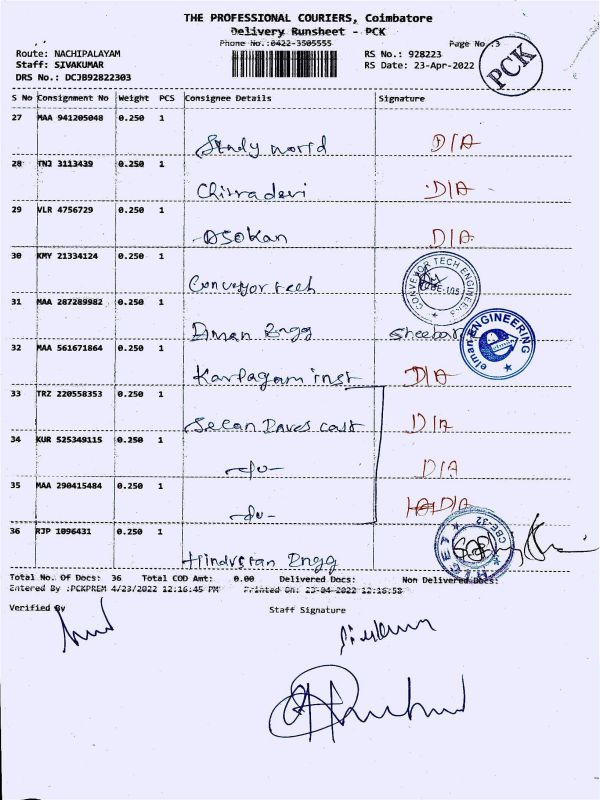 THE PROFESSIONAL COURIERS, Coimbatore
Delivery Runsheet - PCK
Phone No.:0422-3505555 Page No.:3
PCK
Route: NACHIPALAYAM RS No.: 928223
Staff: SIVAKUMAR RS Date: 23-Apr-2022
DRS No.: DCJB92822303
S No Consignment No Weight PCS Consignee Details Signature
27 MAA 941205048 0.250 1
Study world D/A
28 TNJ 3113439 0.250 1
Chitradevi D/A
29 VLR 4756729 0.250 1
Asokan D/A
30 KMY 21334124 0.250 1
Conveyor tech CONVEYOR TECH ENGINEERS
31 MAA 287289982 0.250 1
Elman Engg elman ENGINEERING
32 MAA 561671864 0.250 1
Karpagam inst D/A
33 TRZ 220558353 0.250 1
D/A
34 KUR 525349115 0.250 1
-do- D/A
35 MAA 290415484 0.250 1
-do- D/A
36 RJP 1096431 0.250 1
Hindustan Engg CBE-32
Total No. Of Docs: 36 Total COD Amt: 0.00 Delivered Docs: Non Delivered Docs:
Entered By :PCKPREM 4/23/2022 12:16:45 PM Printed On: 23-04-2022 12:16:58
Verified By Staff Signature